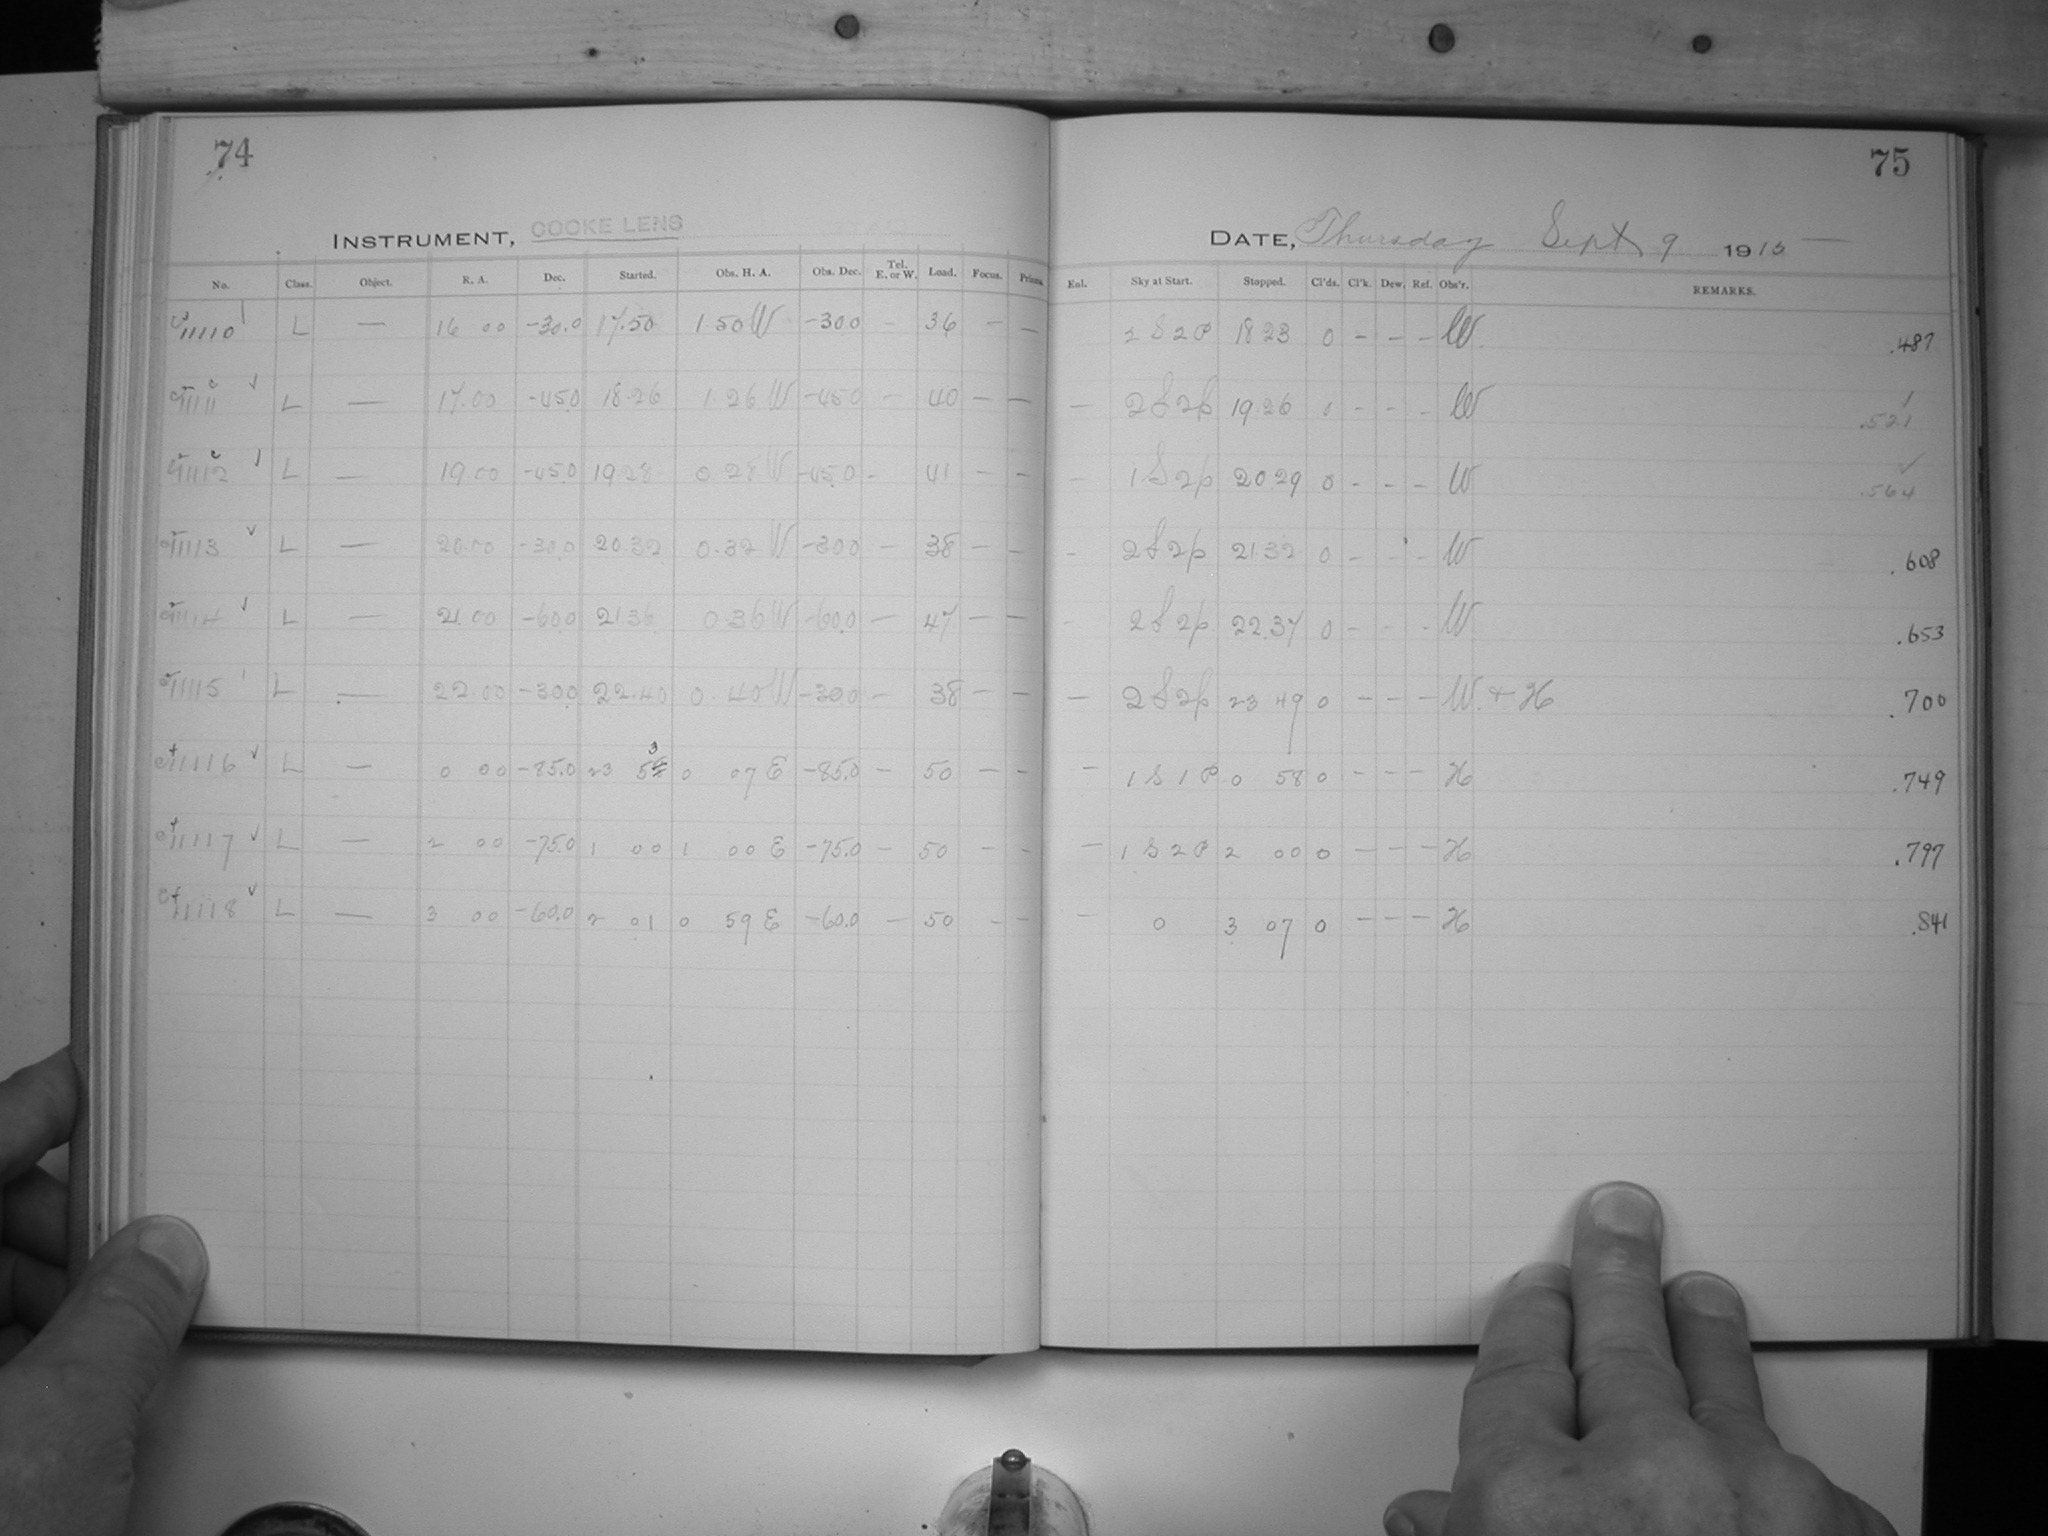 74
INSTRUMENT, COOKE LENS
No. Class. Object. R. A. Dec. Started. Obs. H. A. Obs. Dec. Tel. E. or W. Load. Focus. Prisms.
11110 L — 16 00 -30.0 17.50 1.50 W -30.0 - 36 - -
11111 L — 17.00 -45.0 18.26 1.26 W -45.0 - 40 - -
11112 L — 19.00 -45.0 19.28 0.28 W -45.0 - 41 - -
11113 L — 20.00 -30.0 20.32 0.32 W -30.0 - 38 - -
11114 L — 21.00 -60.0 21.36 0.36 W -60.0 - 47 - -
11115 L — 22.00 -30.0 22.40 0.40 W -30.0 - 38 - -
11116 L — 0 00 -85.0 23 53 0 07 E -85.0 - 50 - -
11117 L — 2 00 -75.0 1 00 1 00 E -75.0 - 50 - -
11118 L — 3 00 -60.0 2 01 0 59 E -60.0 - 50 - -
75
DATE, Thursday Sept 9 1915
Enl. Sky at Start. Stopped. Cl'ds. Cl'k. Dew. Ref. Obs'r. REMARKS.
2 S 2 P 18 23 0 - - - W. .487
- 2 S 2 p 19 26 0 - - - W .521
- 1 S 2 p 20 29 0 - - - W .564
- 2 S 2 p 21 32 0 - - - W .608
- 2 S 2 p 22.37 0 - - - W .653
- 2 S 2 p 23 49 0 - - - W. + H .700
- 1 S 1 P 0 58 0 - - - H .749
- 1 S 2 P 2 00 0 - - - H .797
- 0 3 07 0 - - - H .841